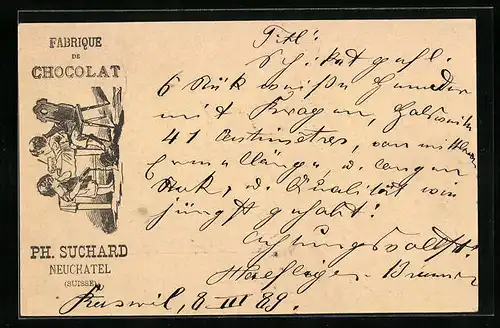 FABRIQUE
DE
CHOCOLAT
PH. SUCHARD
NEUCHATEL
(SUISSE)
Titl!
Schickt gefl.
6 Stük weiße Hemder
mit Kragen, Halsweite
41 Centimetres, von mittlerer
Ermellänge, u. langen
Stok, u. Qualität wie
jüngst gehabt!
Achtungsvollst!
Haefliger-Brunner
Ruswil, 8 III 89.